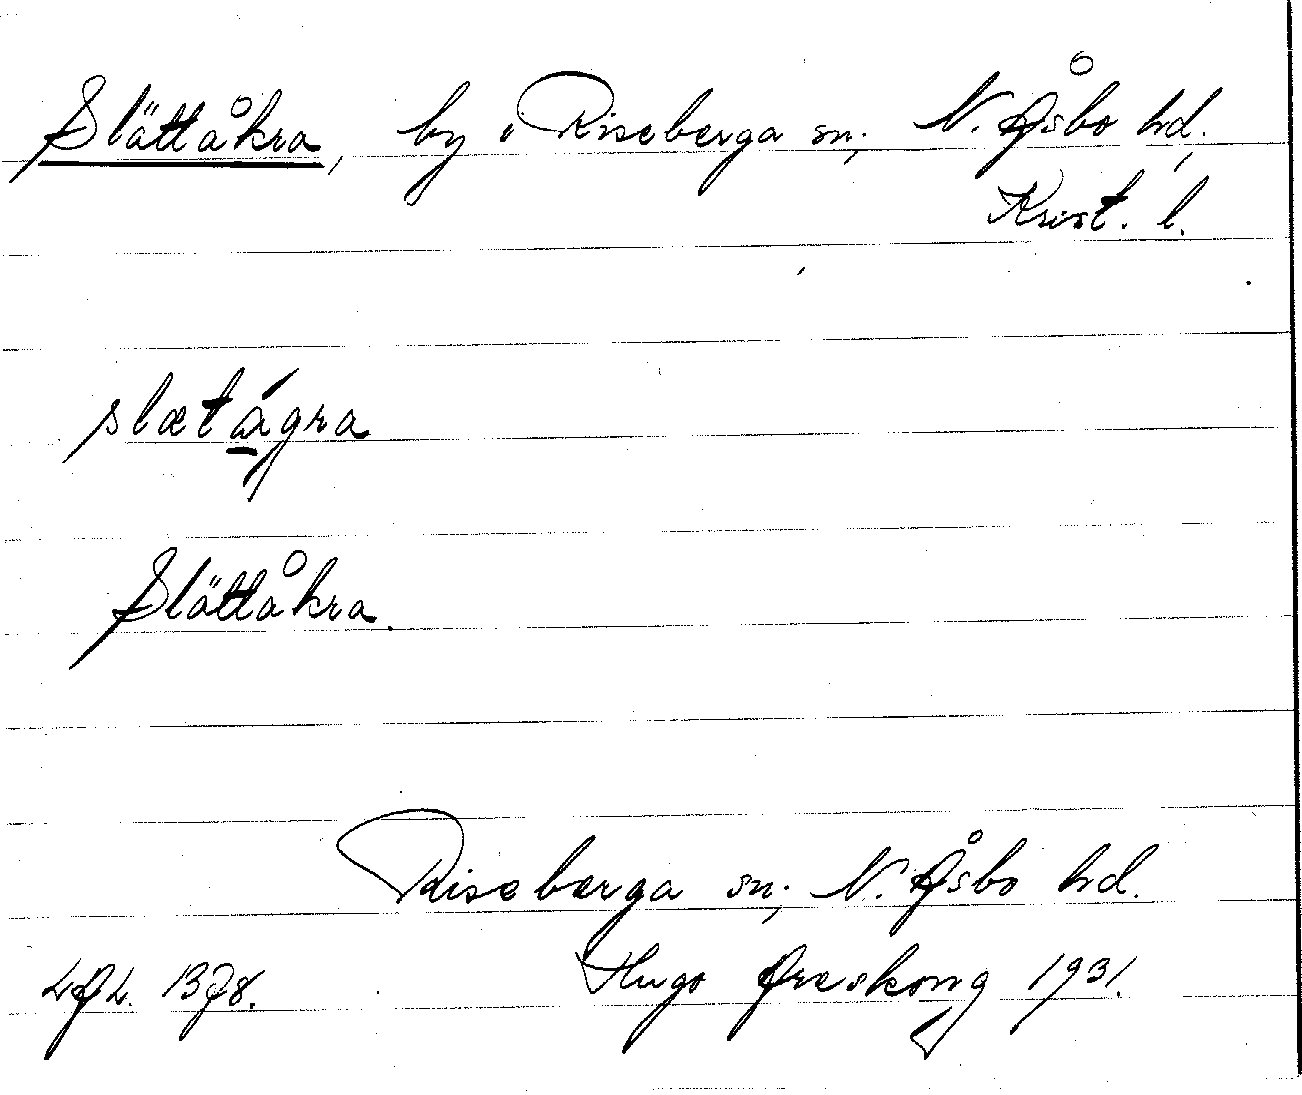 Slättåkra, by i Riseberga sn; N. Åsbo hd,
Krist. l.
slætágra
Slättåkra.
Riseberga sn; N. Åsbo hd.
Hugo Areskoug 1931.